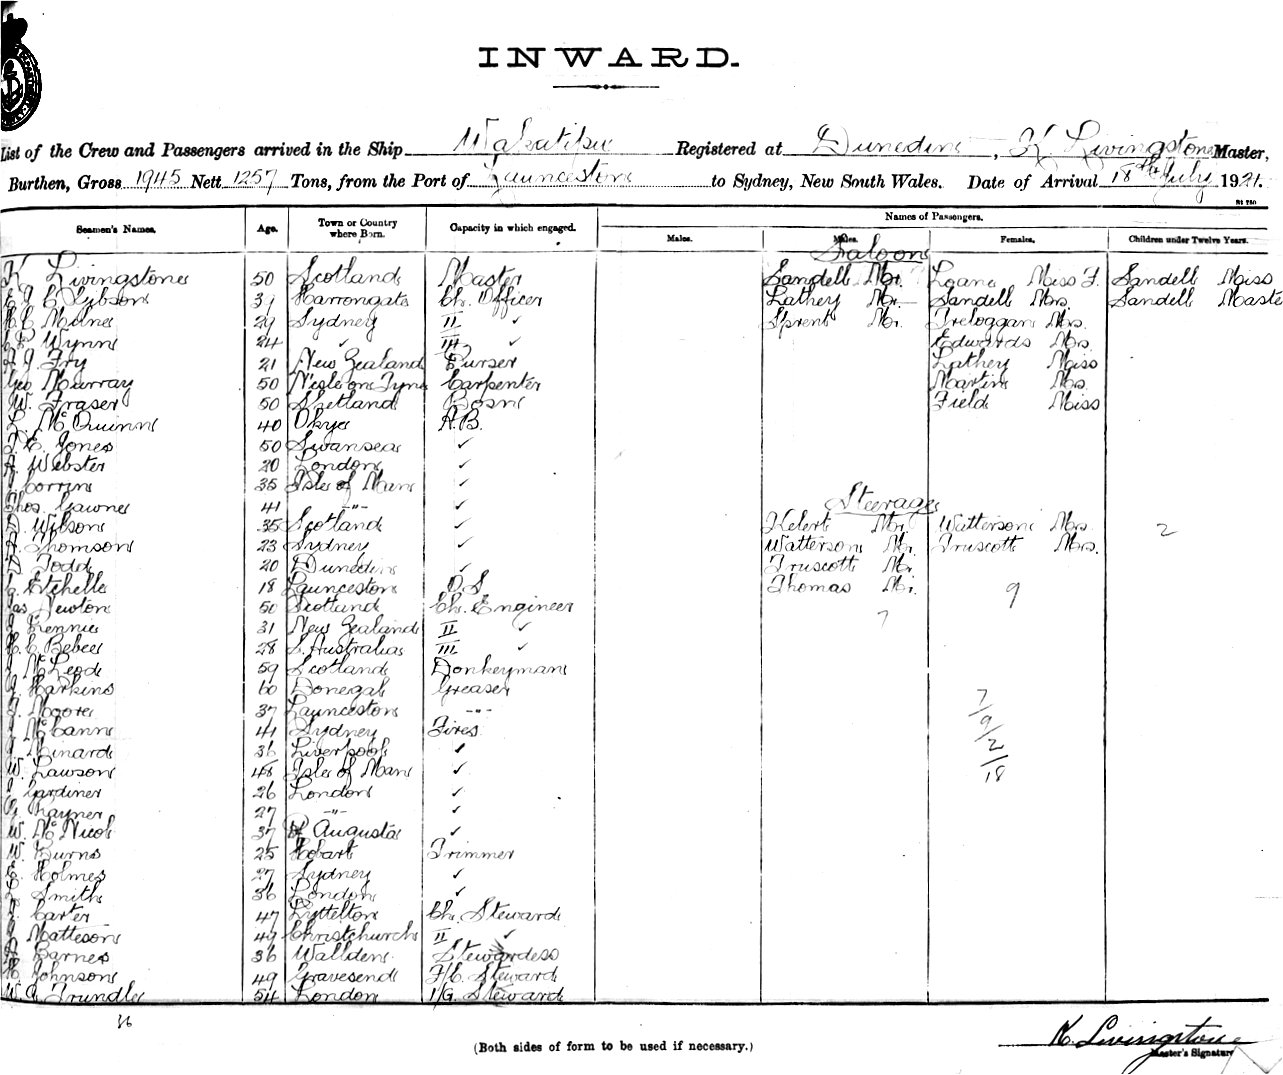 INWARD.
List of the Crew and Passengers arrived in the Ship Wakatipu Registered at Dunedin, K Livingstone Master,
Burthen, Gross 1945 Nett 1257 Tons, from the Port of Launceston to Sydney, New South Wales. Date of Arrival 18th July 1921.
Names of Passengers.
Seamen's Names. Age. Town or Country where Born. Capacity in which engaged. Males. Males. Females. Children under Twelve Years.
Saloon
K Livingstone 50 Scotland Master Sandell Mr. Loane Miss F. Sandell Miss
Gibson Harrongate Ch. Officer Lathey Mr. Sandell Mrs. Sandell Maste
Milne 29 Sydney II ✓ Sprent Mr. Treloggan Mrs.
Wynn 24 ✓ III ✓ Edwards Mrs
Fry 21 New Zealand Purser Lathey Miss
Geo Murray 50 N'csle on Tyne Carpenter Martin Mrs.
W. Fraser 50 Shetland Bosn Field Miss
L. McQuinn 40 A.B.
T. E. Jones 50 Swansea ✓
A. Webster 20 London ✓
J Corrin 35 Isle of Man ✓
Steerage
Thos. Gawne 41 -"- ✓
D. Wilson 35 Scotland ✓ Kelert Mr. Watterson Mrs. 2
A. Thomson 23 Sydney ✓ Watterson Mr. Truscott Mrs.
D Todd 20 Dunedin ✓ Truscott Mr
Etchells 18 Launceston O.S Thomas Mr. 9
Jas Newton 50 Scotland Ch. Engineer 7
J Rennie 31 New Zealand II ✓
H. C Bebee 28 S. Australia III ✓
J McLeod 59 Scotland Donkeyman
J. Harkins 60 Donegal Greaser 7
J. Moore 37 Launceston -"- 9
J McCann 41 Sydney Fires 2
J Minard 36 Liverpool ✓
W. Lawson 48 Isle of Man ✓ 18
J Gardiner 26 London ✓
Rayner 27 -"- ✓
W. McNicol 37 Pt Augusta ✓
W. Burns 25 Hobart Trimmer
E. Holmes 27 Sydney ✓
L Smith 36 London ✓
J. Carter 47 Lyttelton Ch. Steward
J Matteson 49 Christchurch II ✓
Barnes 36 Stewardess
H Johnson 49 Gravesend F/C. Steward
W G Trundle 54 London Steward
36
(Both sides of form to be used if necessary.)
K. Livingstone
Master's Signature